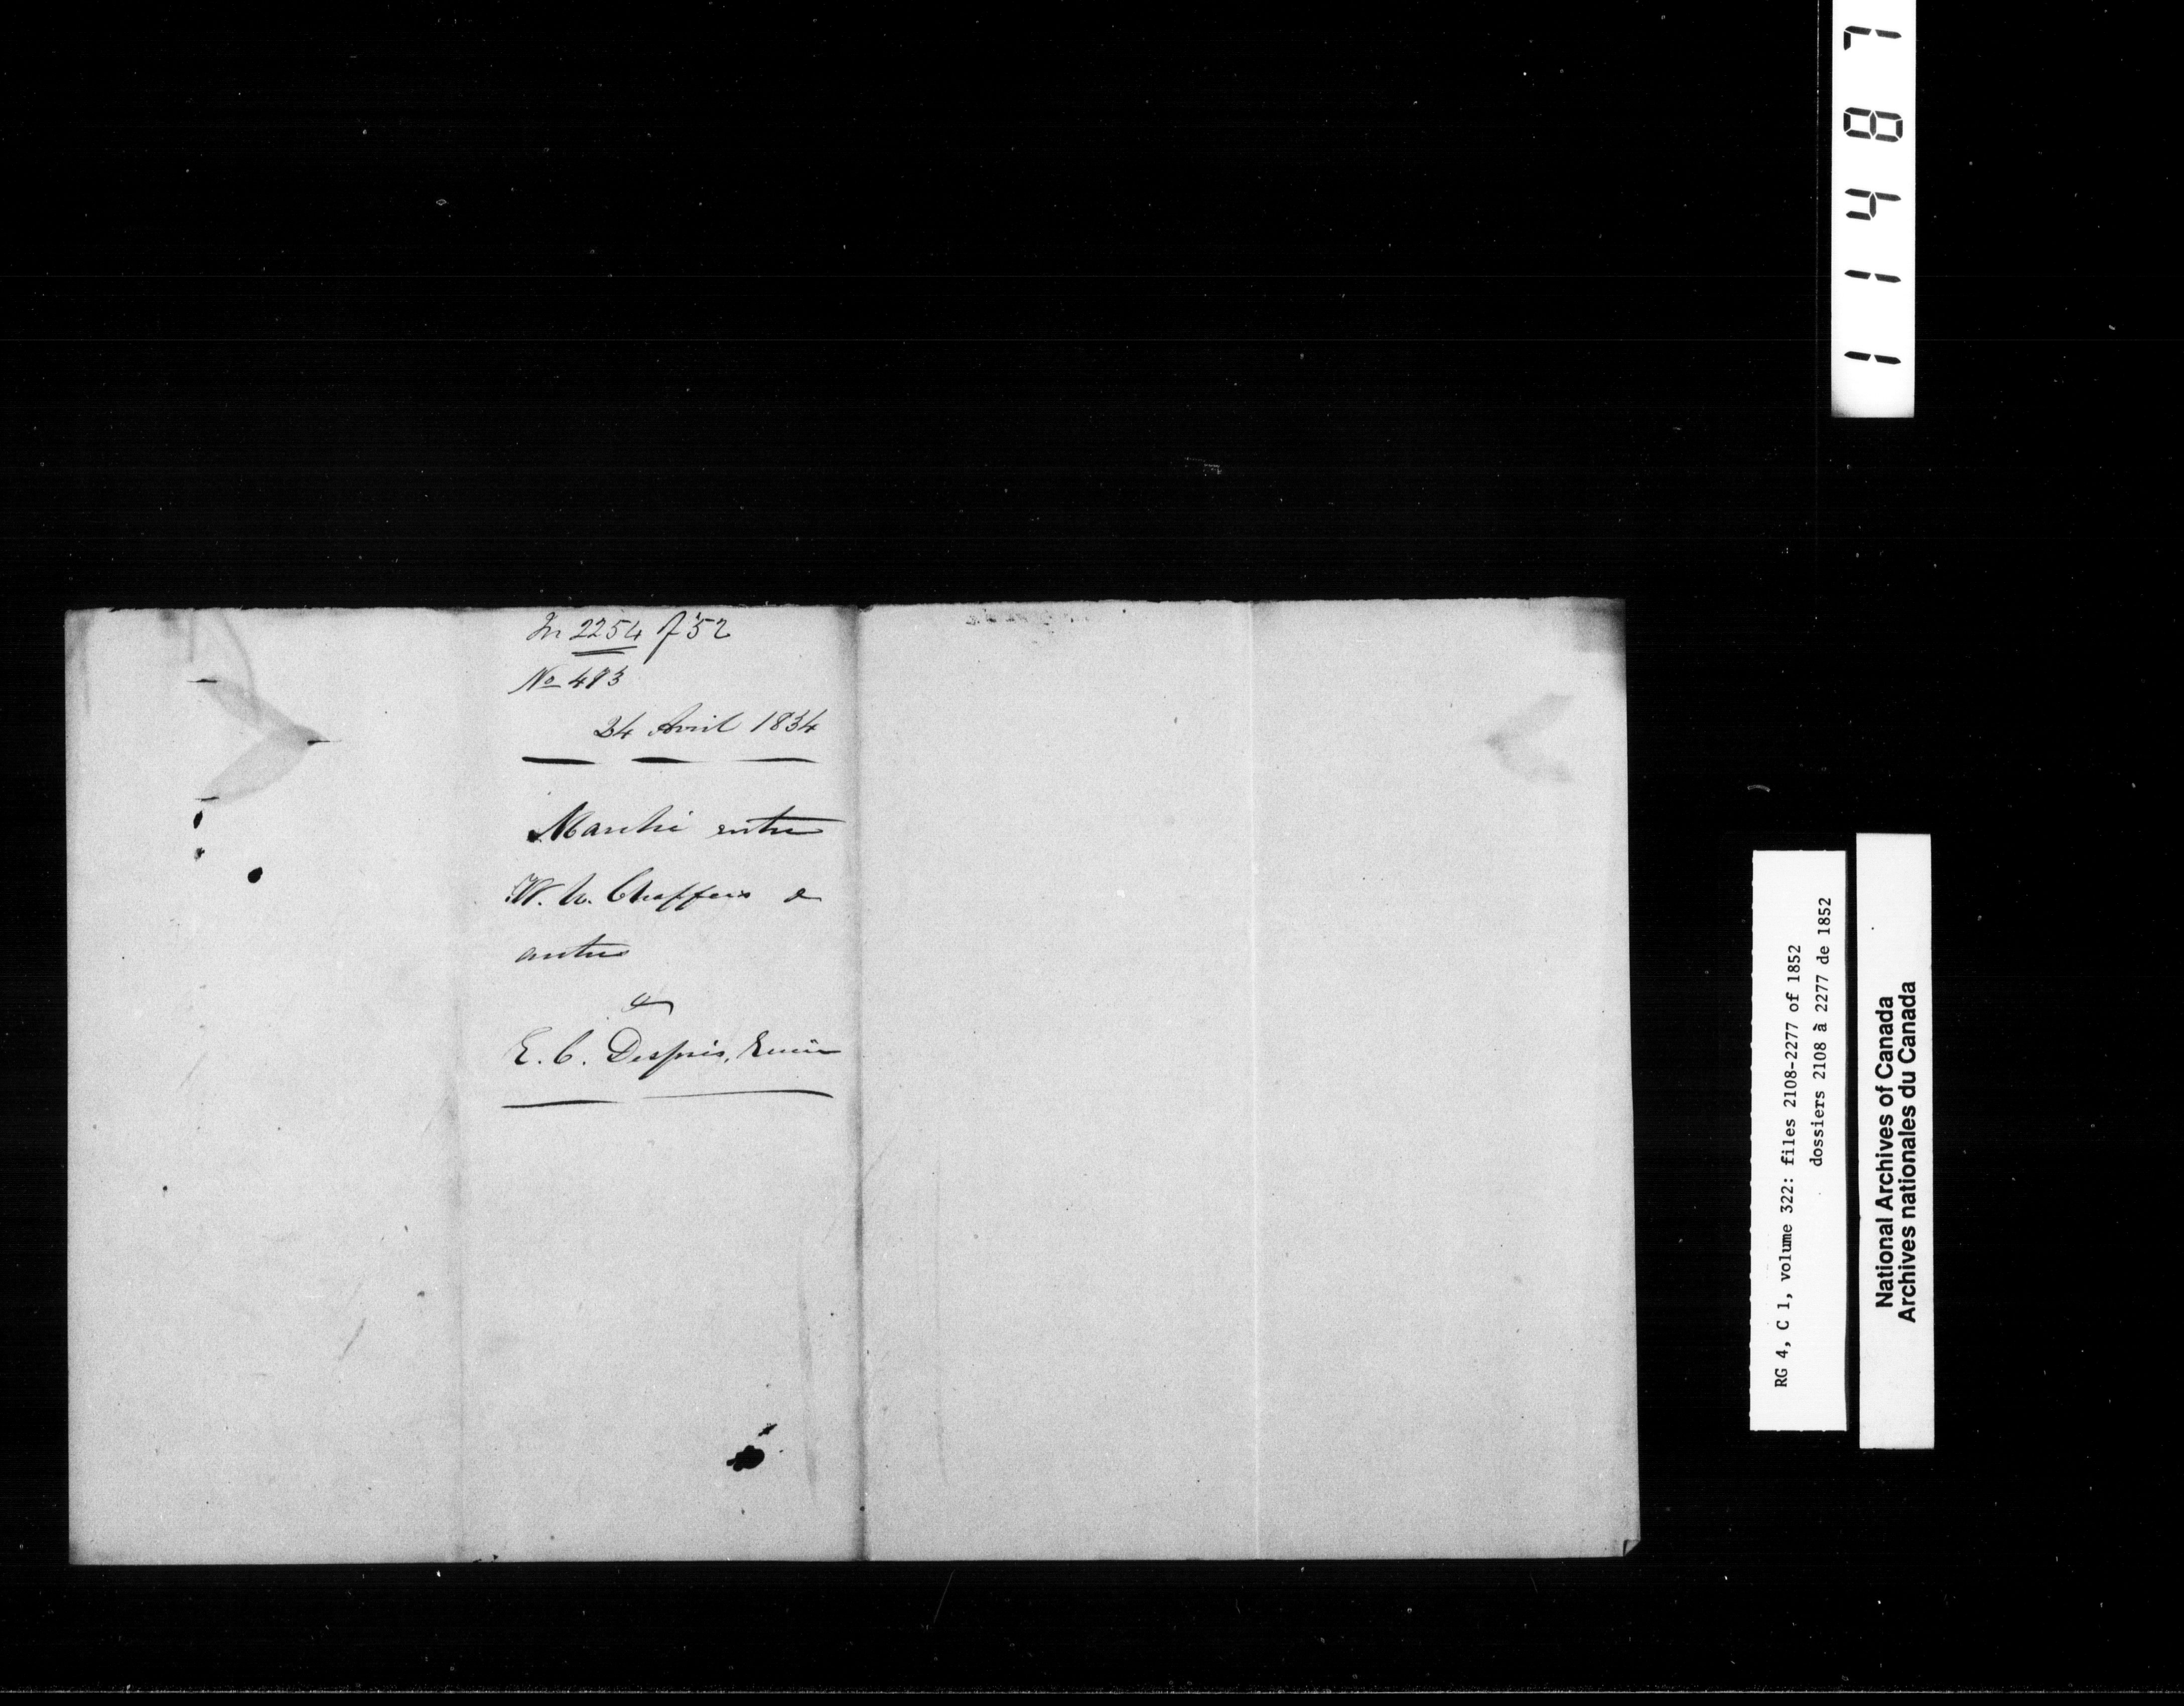 In 2254 of '52
No 493
24 Avril 1834
Marché entre
W. U. Chaffers &
autres
&
E. C. Després, Ecuier
11487
RG 4, C 1, volume 322: files 2108-2277 of 1852
dossiers 2108 à 2277 de 1852
National Archives of Canada
Archives nationales du Canada